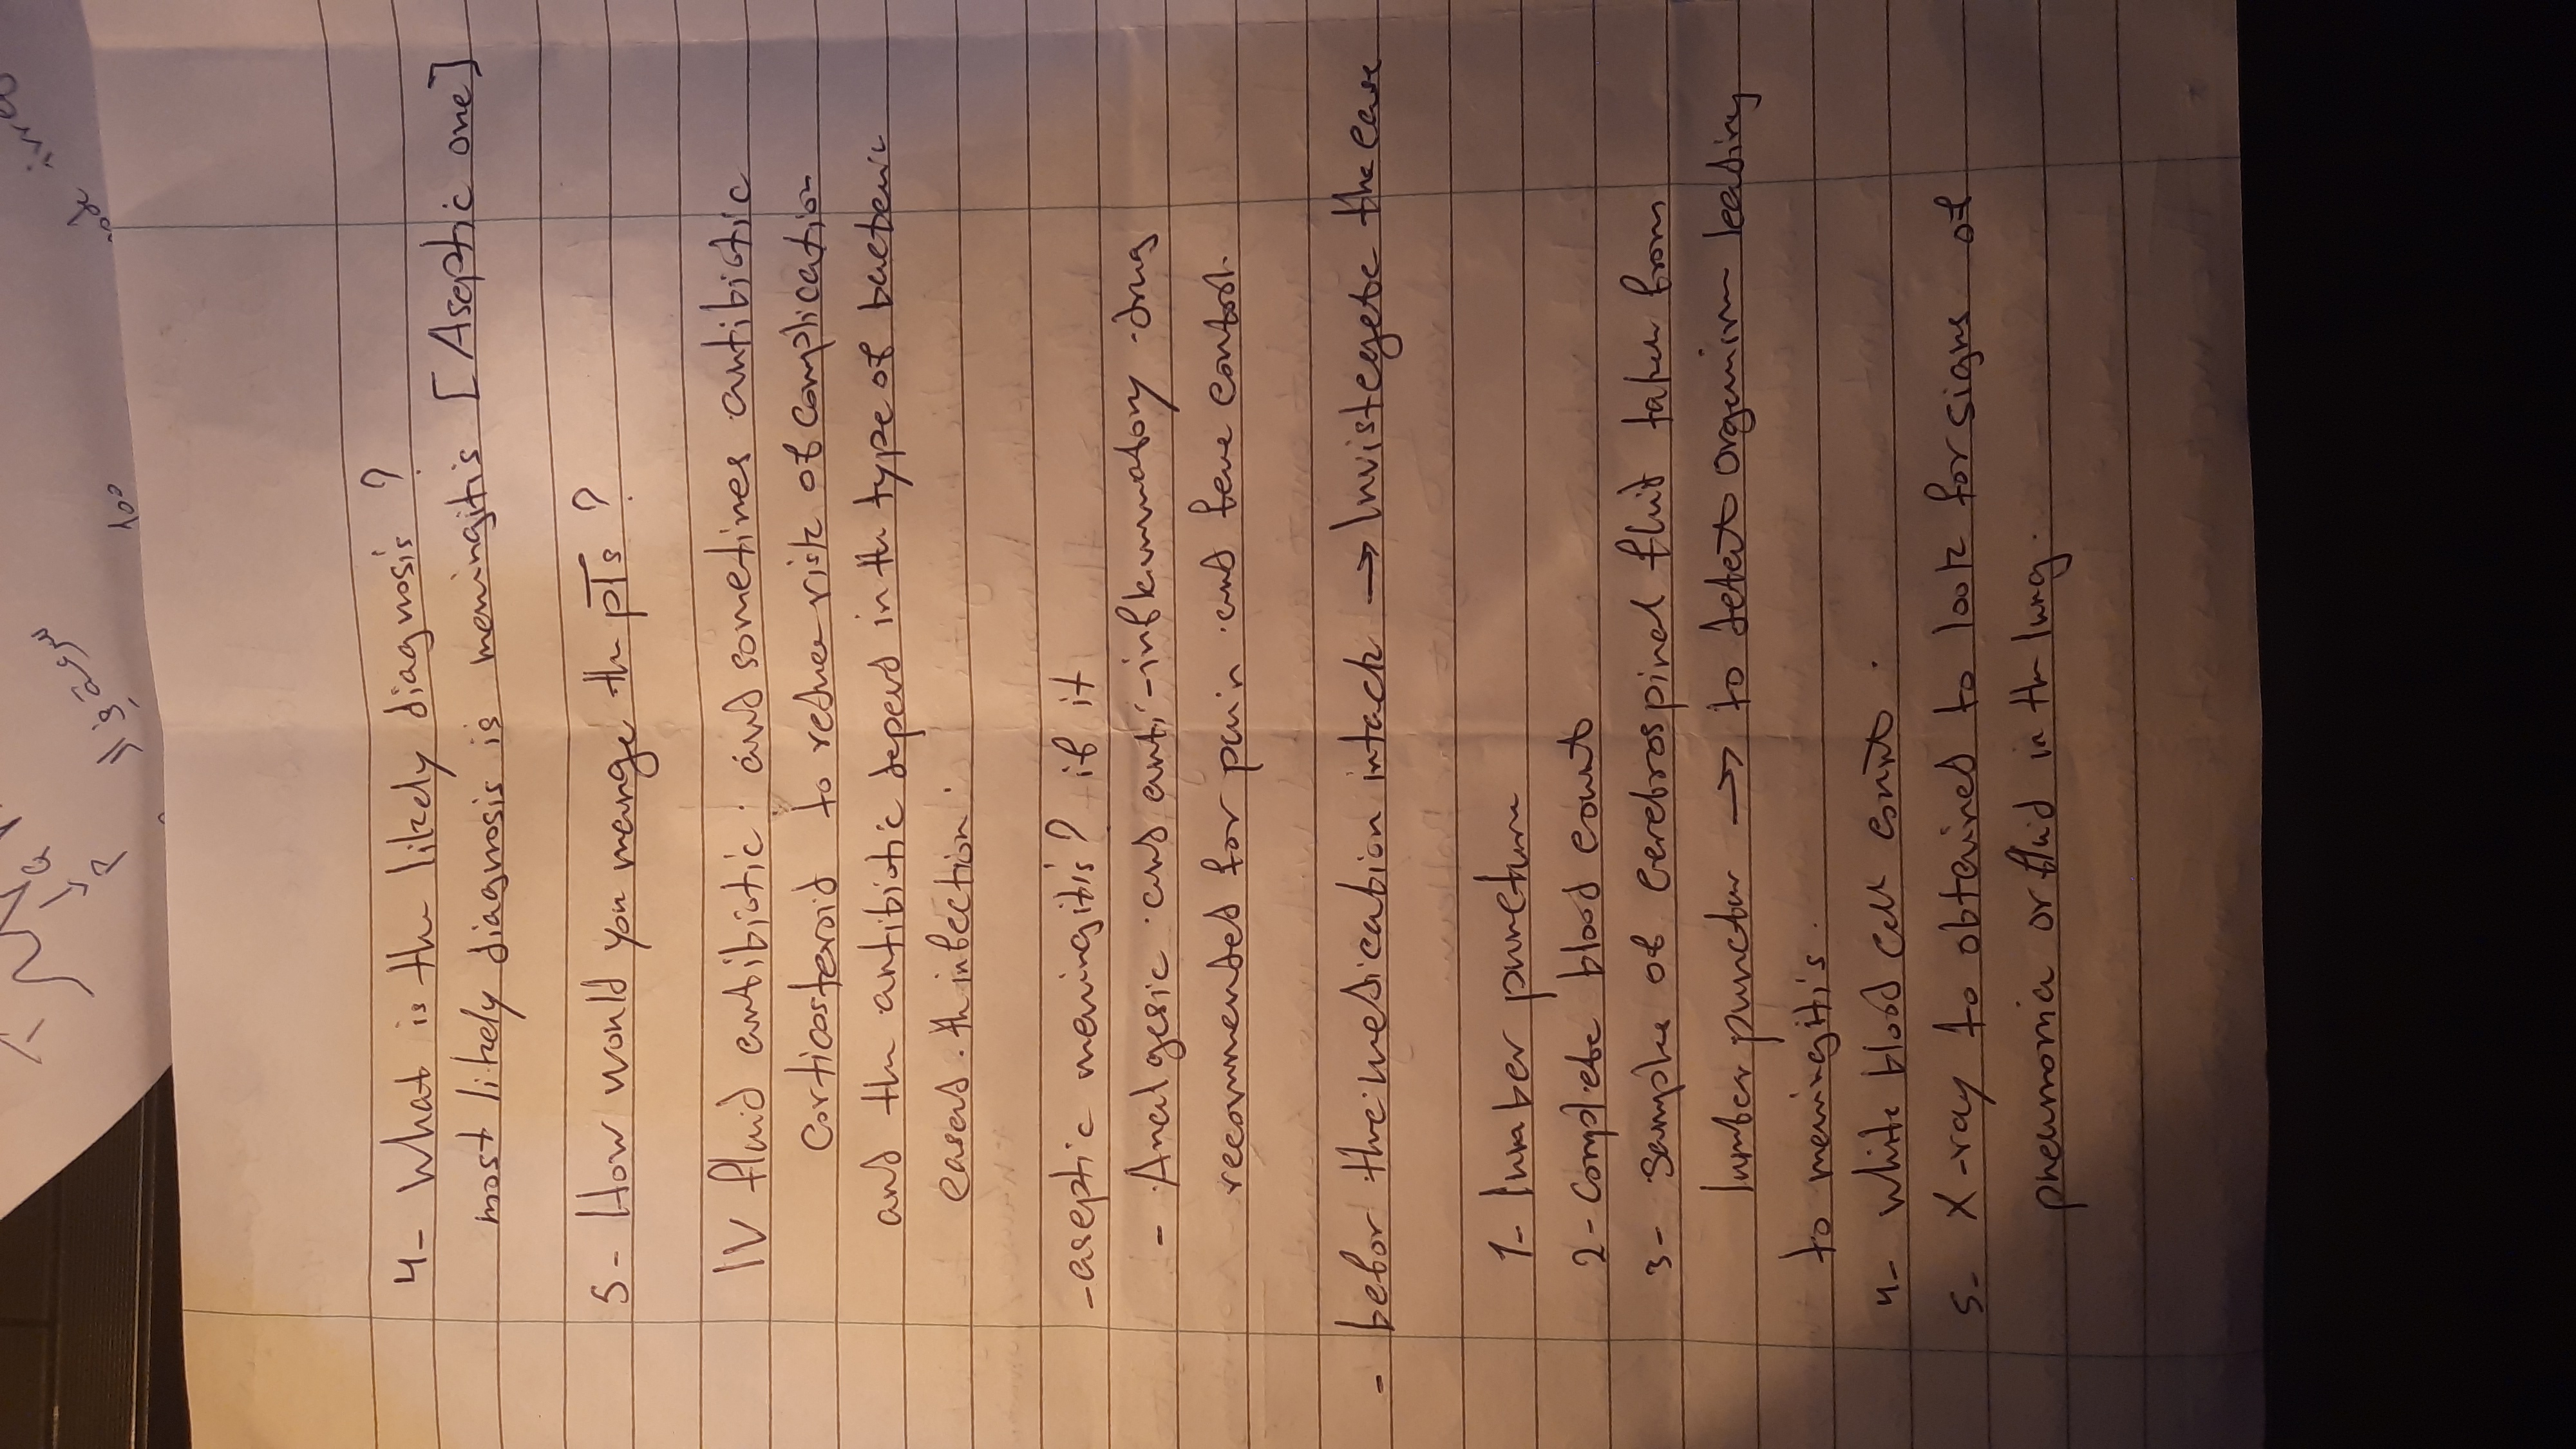 4- What is the likely diagnosis ?
most likely diagnosis is meningitis [Aseptic one]
5- How would you mange the pts ?
IV fluid antibiotic. and sometimes antibiotic
Corticosteroid to reduce risk of complication
and the antibiotic depend in the type of bacteric
cases. the infection.
- aseptic meningitis? if it
- Analgesic and anti-inflammatory drug
recommended for pain and feve control.
- befor the medication intack → Invistegete the case
1- lumber puncture
2- Complete blood count
3- Sample of cerebrospinal fluid taken from
lumber punctur → to detect organism leading
to meningitis.
4- white blood cell count.
5- X-ray to obtained to look for signs of
pneumonia or fluid in the lung.